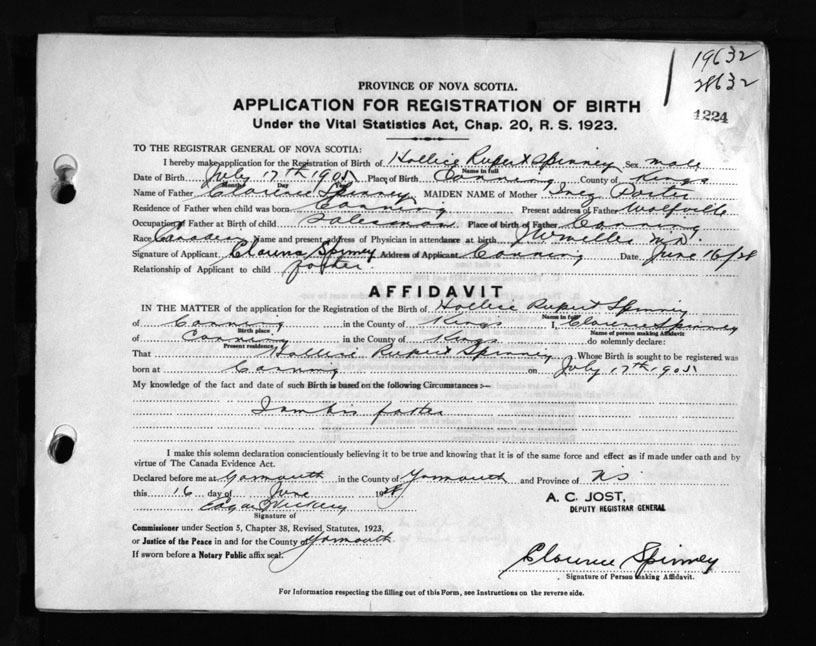 19632
28632
1224
PROVINCE OF NOVA SCOTIA.
APPLICATION FOR REGISTRATION OF BIRTH
Under the Vital Statistics Act, Chap. 20, R. S. 1923.
TO THE REGISTRAR GENERAL OF NOVA SCOTIA:
I hereby make application for the Registration of Birth of Hollice Rupert Spinney Sex male
Name in full
Date of Birth July 17th 1905 Place of Birth Canning County of Kings
Month Day Year
Name of Father Clarence Spinney MAIDEN NAME of Mother Inez
Residence of Father when child was born Canning Present address of Father Wolfville
Occupation of Father at Birth of child Salesman Place of birth of Father Canning
Race Canadian Name and present address of Physician in attendance at birth J W Miller M.D.
Signature of Applicant Clarence Spinney Address of Applicant Canning Date June 16/28
Relationship of Applicant to child father
AFFIDAVIT
IN THE MATTER of the application for the Registration of the Birth of Hollice Rupert Spinney
Name in full
of Canning in the County of Kings I, Clarence Spinney
Birth place Name of person making Affidavit
of Canning in the County of Kings do solemnly declare:
Present residence
That Hollice Rupert Spinney Whose Birth is sought to be registered was
born at Canning on July 17th 1905
My knowledge of the fact and date of such Birth is based on the following Circumstances :—
I am his father
I make this solemn declaration conscientiously believing it to be true and knowing that it is of the same force and effect as if made under oath and by
virtue of The Canada Evidence Act.
Declared before me at Yarmouth in the County of Yarmouth and Province of NS
this 16 day of June 1928
A. C. JOST,
DEPUTY REGISTRAR GENERAL
Edgar
Signature of
Commissioner under Section 5, Chapter 38, Revised Statutes, 1923,
or Justice of the Peace in and for the County of Yarmouth
If sworn before a Notary Public affix seal.
Clarence Spinney
Signature of Person making Affidavit.
For Information respecting the filling out of this Form, see Instructions on the reverse side.